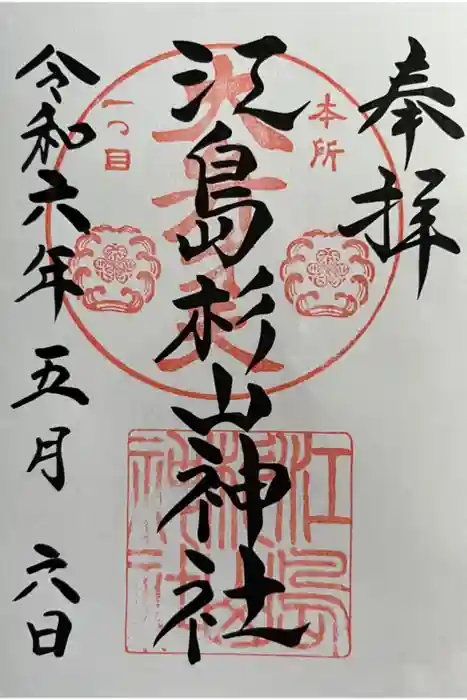 奉拝
本所
一つ目
江島杉山神社
江島杉山神社
令和六年五月六日